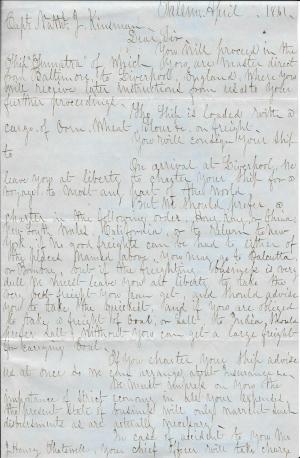 Salem April 1861.
Capt. Nathl. J. Kinsman
Dear Sir
You will proceed in the
Ship of which you are master direct
from Baltimore, to Liverpool, England, where you
will receive later instructions from us as to your
further proceedings.
The Ship is loaded with a
cargo of Corn, Wheat, Flour &c. on freight.
You will consign your Ship
to
On arrival at Liverpool, we
leave you at liberty to charter your Ship for a
voyage to most any part of the world.
But we should prefer a
charter in the following order, Hong Kong or China,
Wales, California, or to return to New
York, if no good freights can be had to either of
the places named above, you may go to Calcutta
or Bombay, but if the freighting business is very
dull we must leave you at liberty to take the
very best freight you can get, and should advise
you to take the quickest, and if you are obliged
to take a freight of Coal, or Salt to India, should
prefer Salt, without you can get a large freight
for carrying Coal.
If you charter your Ship advise
us at once so we can arrange about Insurance &c.
We must impress on you the
importance of strict economy in all your expenses,
the present state of business will only warrant such
disbursements as are actually necessary.
In case of accident to you Mr
Henry your chief officer will take charge